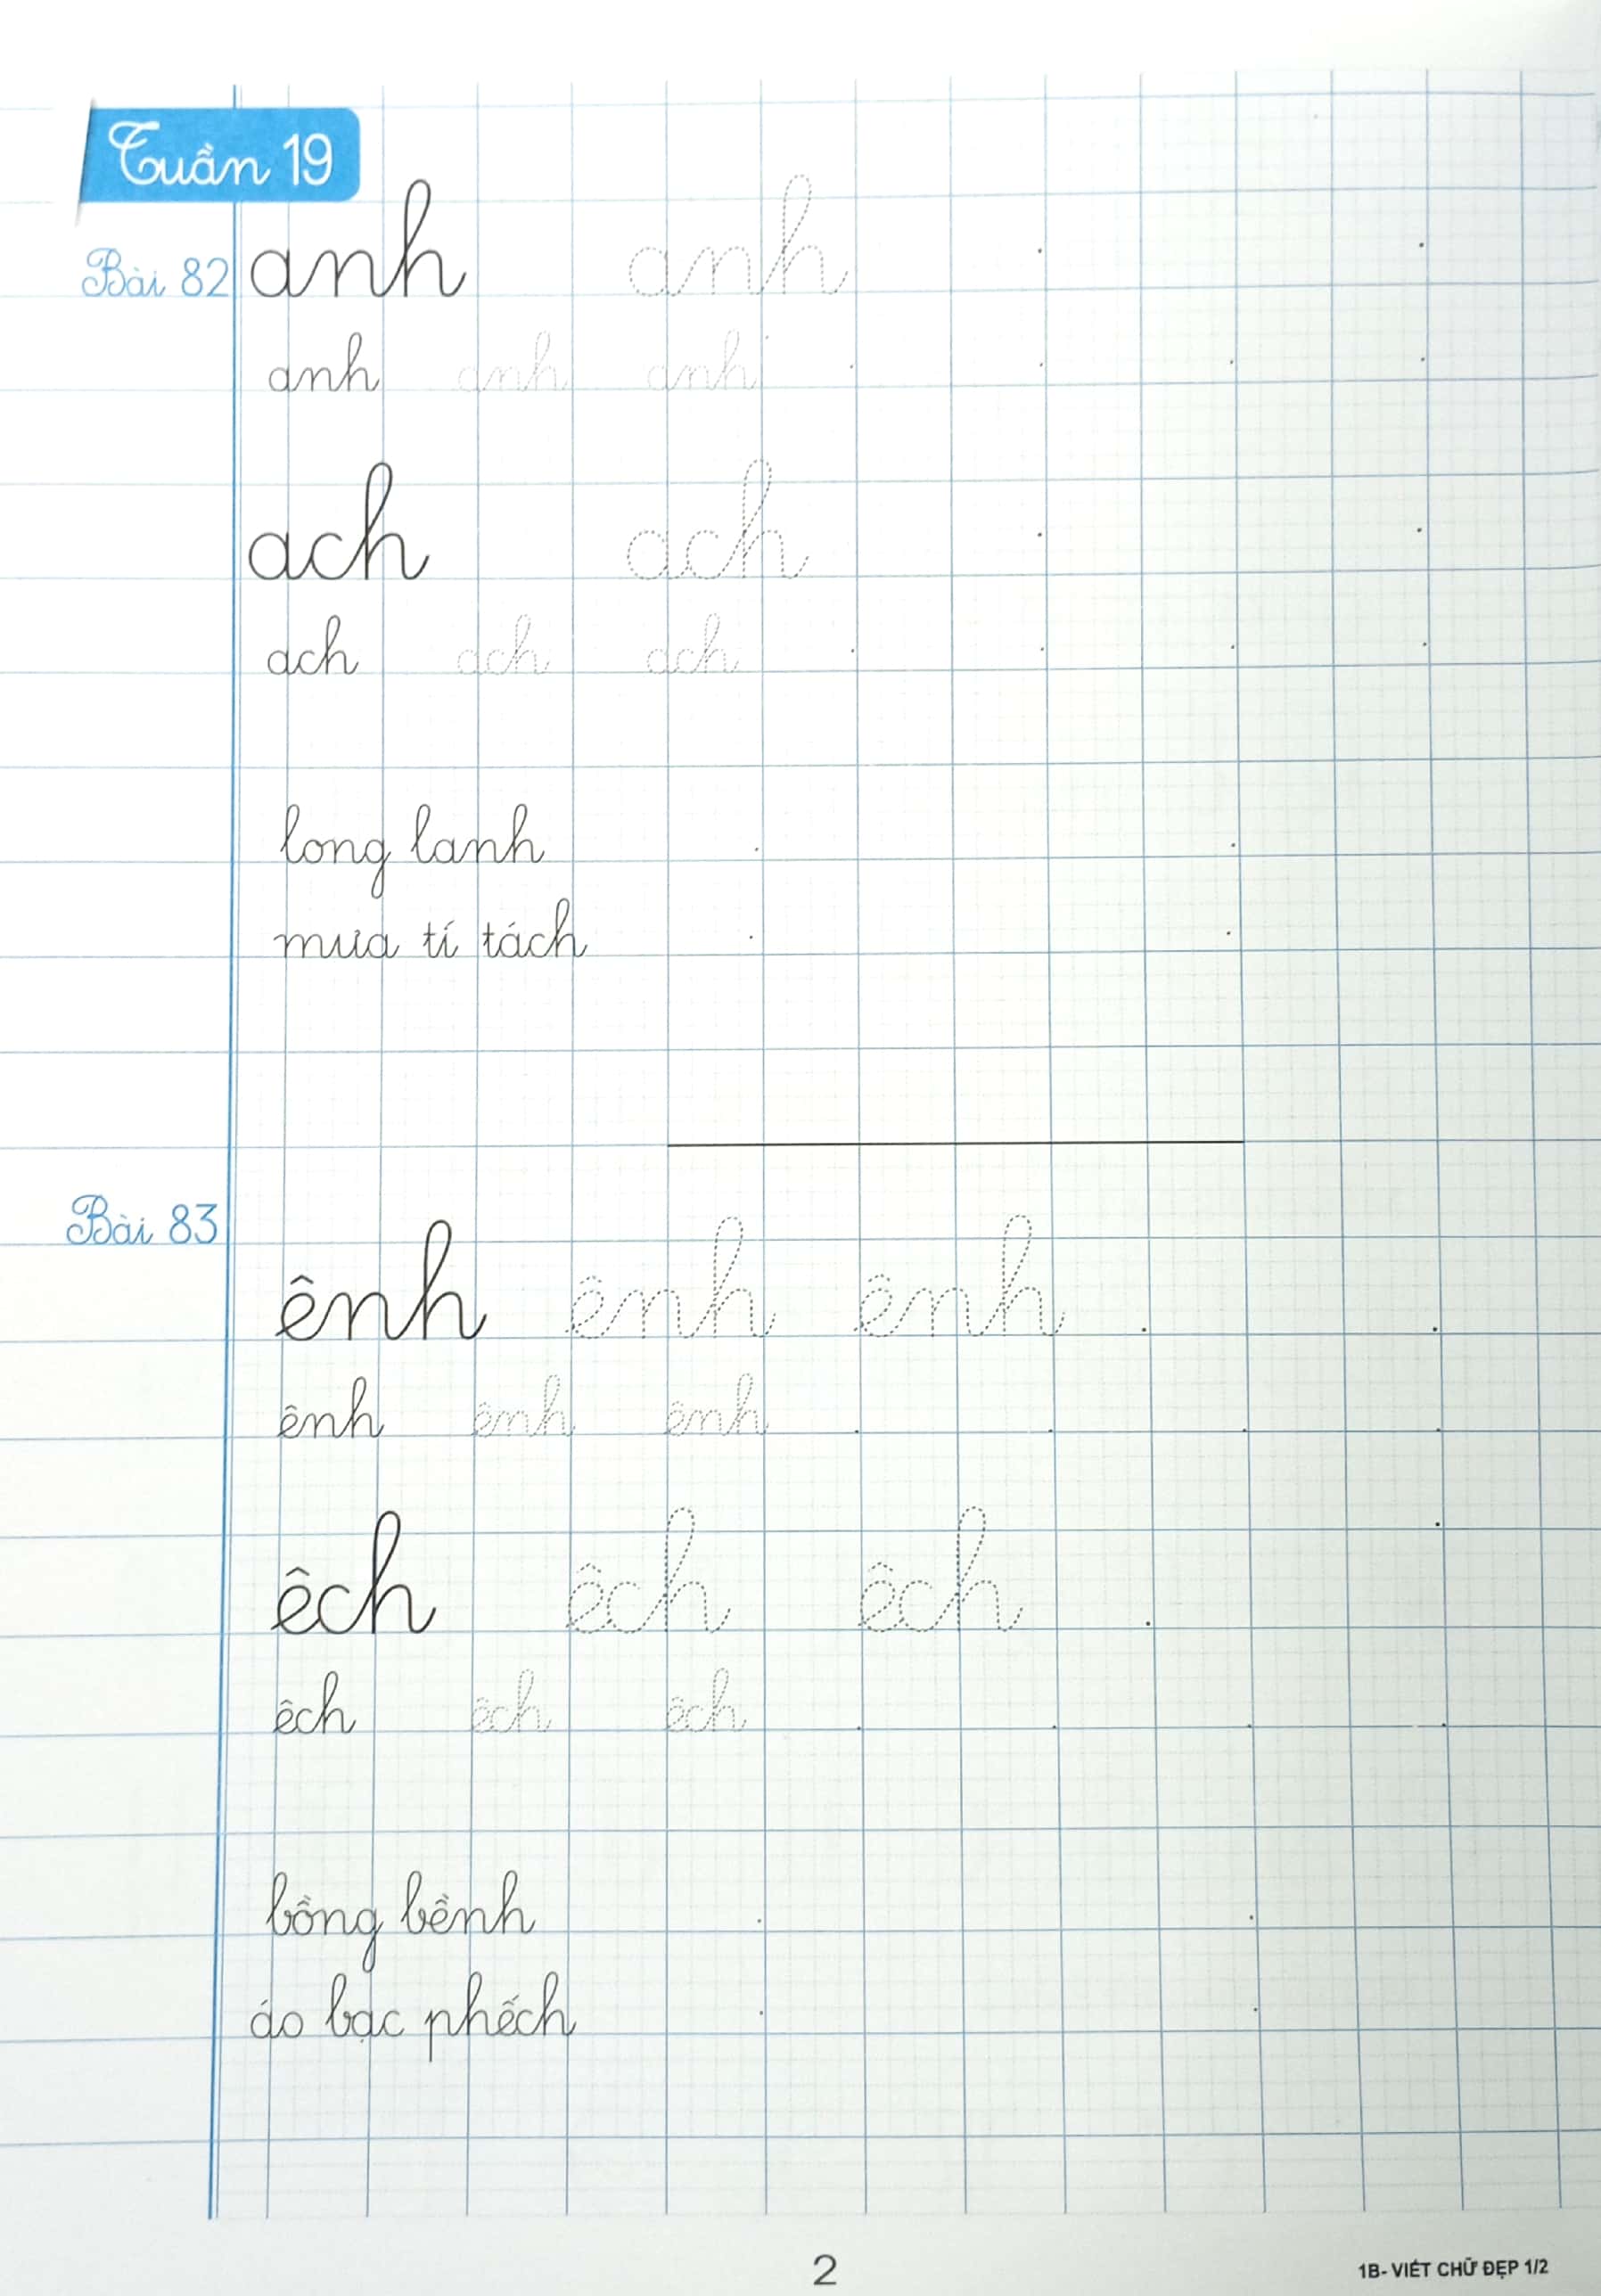 Tuần 19
Bài 82 anh anh
anh anh anh
ach ach
ach ach ach
long lanh
mưa tí tách
Bài 83
ênh ênh ênh
ênh ênh ênh
êch êch êch
êch êch êch
bồng bềnh
áo bạc phếch
2
1B- VIẾT CHỮ ĐẸP 1/2